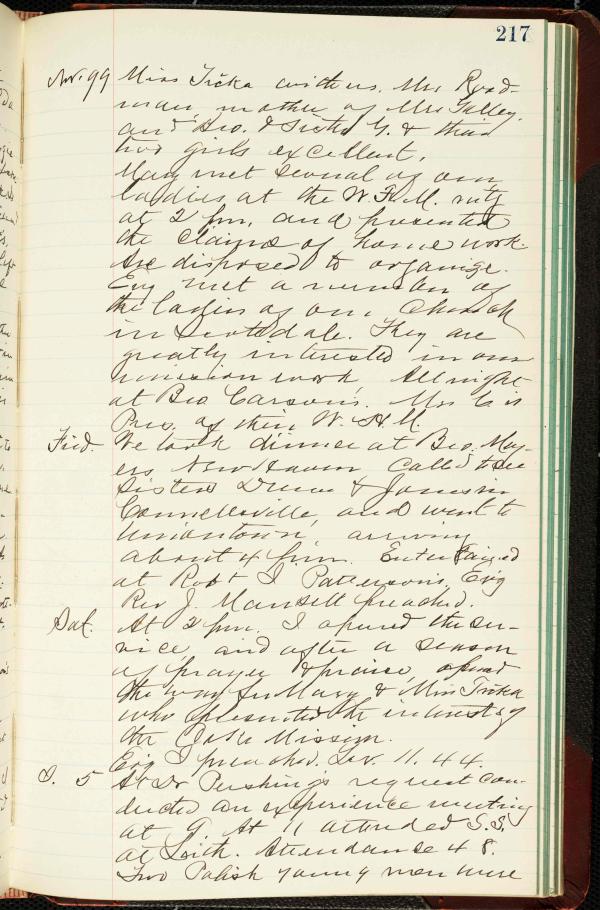 217
Nov. 99 Miss Ticka with us. Mrs Road-
man, mother of Mrs Gulley,
and Bro. & Sister G. & their
two girls excellent.
Mary met several of our
ladies at the W.F.M. mtg
at 2 pm, and presented
the claims of home work.
Are disposed to organize.
Evg met a number of
the ladies of our Church
in Scottdale. They are
greatly interested in our
mission work. All night
at Bro Carson's. Mrs C is
Pres. of their W.H.M.
Frid. We took dinner at Bro. May-
ers New Haven Called to see
Sisters & Jones in
Connellsville, and went to
Uniontown, arriving
about 4 pm. Entertained
at Robt I Patterson's. Evg
Rev J. Mansell preached.
Sat. At 2 pm. I opened the ser-
vice, and after a season
of prayer & praise, opened
the way for Mary & Miss Ticka
who presented the interests of
the Mission.
Evg I preached. Lev. 11.44.
S. 5 At Dr Pershing's request con-
ducted an experience meeting
at 9. At 11 attended S.S.
at Leith. Attendance 48.
Two Polish young men were